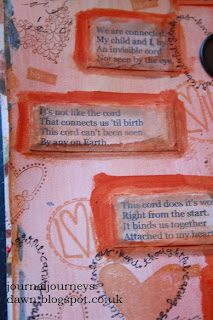 We are connected
My child and I, by
An invisible cord
Not seen by the eye.
It's not like the cord
That connects us 'til birth
This cord can't been seen
By any on Earth.
This cord does it's wo
Right from the start.
It binds us together
Attached to my hear
journaljourneys
dawn.blogspot.co.uk